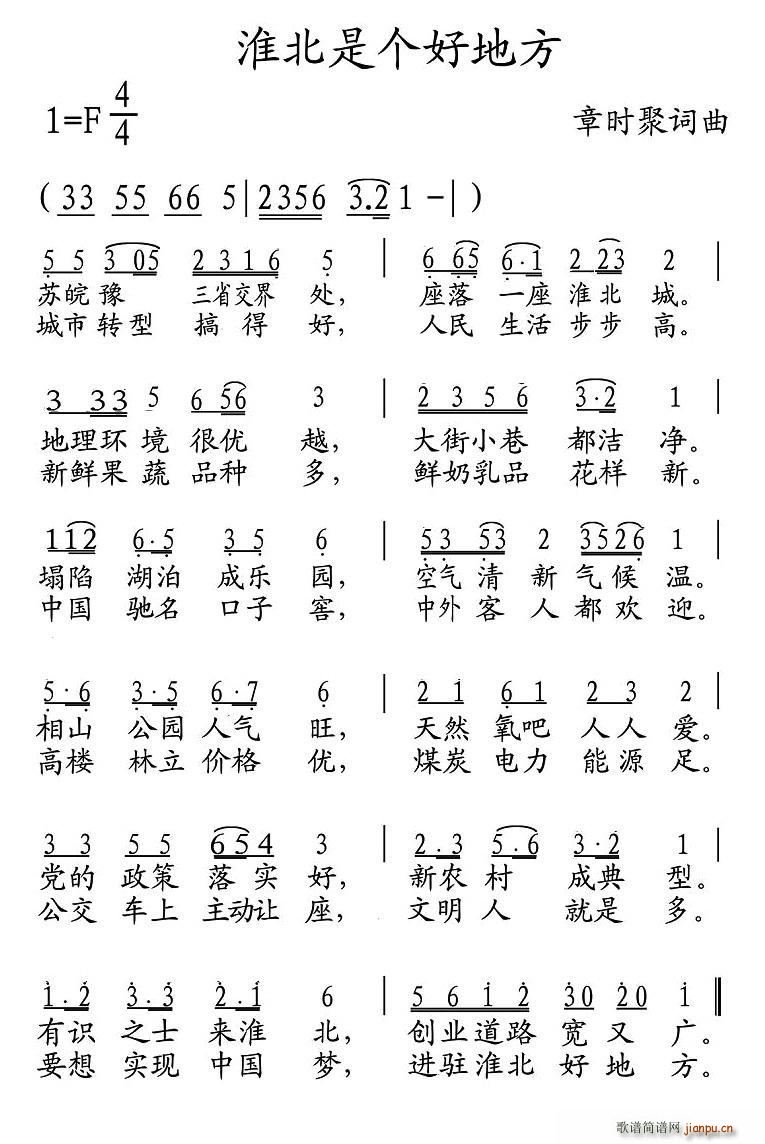 淮北是个好地方
1=F 4/4 章时聚词曲
( 33 55 66 5 | 2356 3.2 1 - | )
5 5 3 05 2316 5 | 6 65 6·1 2 23 2 |
苏皖豫 三省交界 处, 座落 一座 淮北 城。
城市转型 搞得 好, 人民 生活 步步 高。
3 33 5 6 56 3 | 2356 3·2 1 |
地理环 境 很优 越, 大街小巷 都洁 净。
新鲜果 蔬 品种 多, 鲜奶乳品 花样 新。
112 6·5 3 5 6 | 53 53 2 3526 1 |
塌陷 湖泊 成乐 园, 空气 清 新 气候 温。
中国 驰名 口子 窖, 中外 客 人 都欢 迎。
5·6 3·5 6·7 6 | 2 1 6 1 2 3 2 |
相山 公园 人气 旺, 天然 氧吧 人人 爱。
高楼 林立 价格 优, 煤炭 电力 能源 足。
3 3 5 5 654 3 | 2.3 5.6 3·2 1 |
党的 政策 落实 好, 新农 村 成典 型。
公交 车上 主动让 座, 文明 人 就是 多。
1.2 3.3 2.1 6 | 5 6 1 2 30 20 1 ‖
有识 之士 来淮 北, 创业道路 宽 又 广。
要想 实现 中国 梦, 进驻淮北 好 地 方。
歌谱简谱网
jianpu.cn